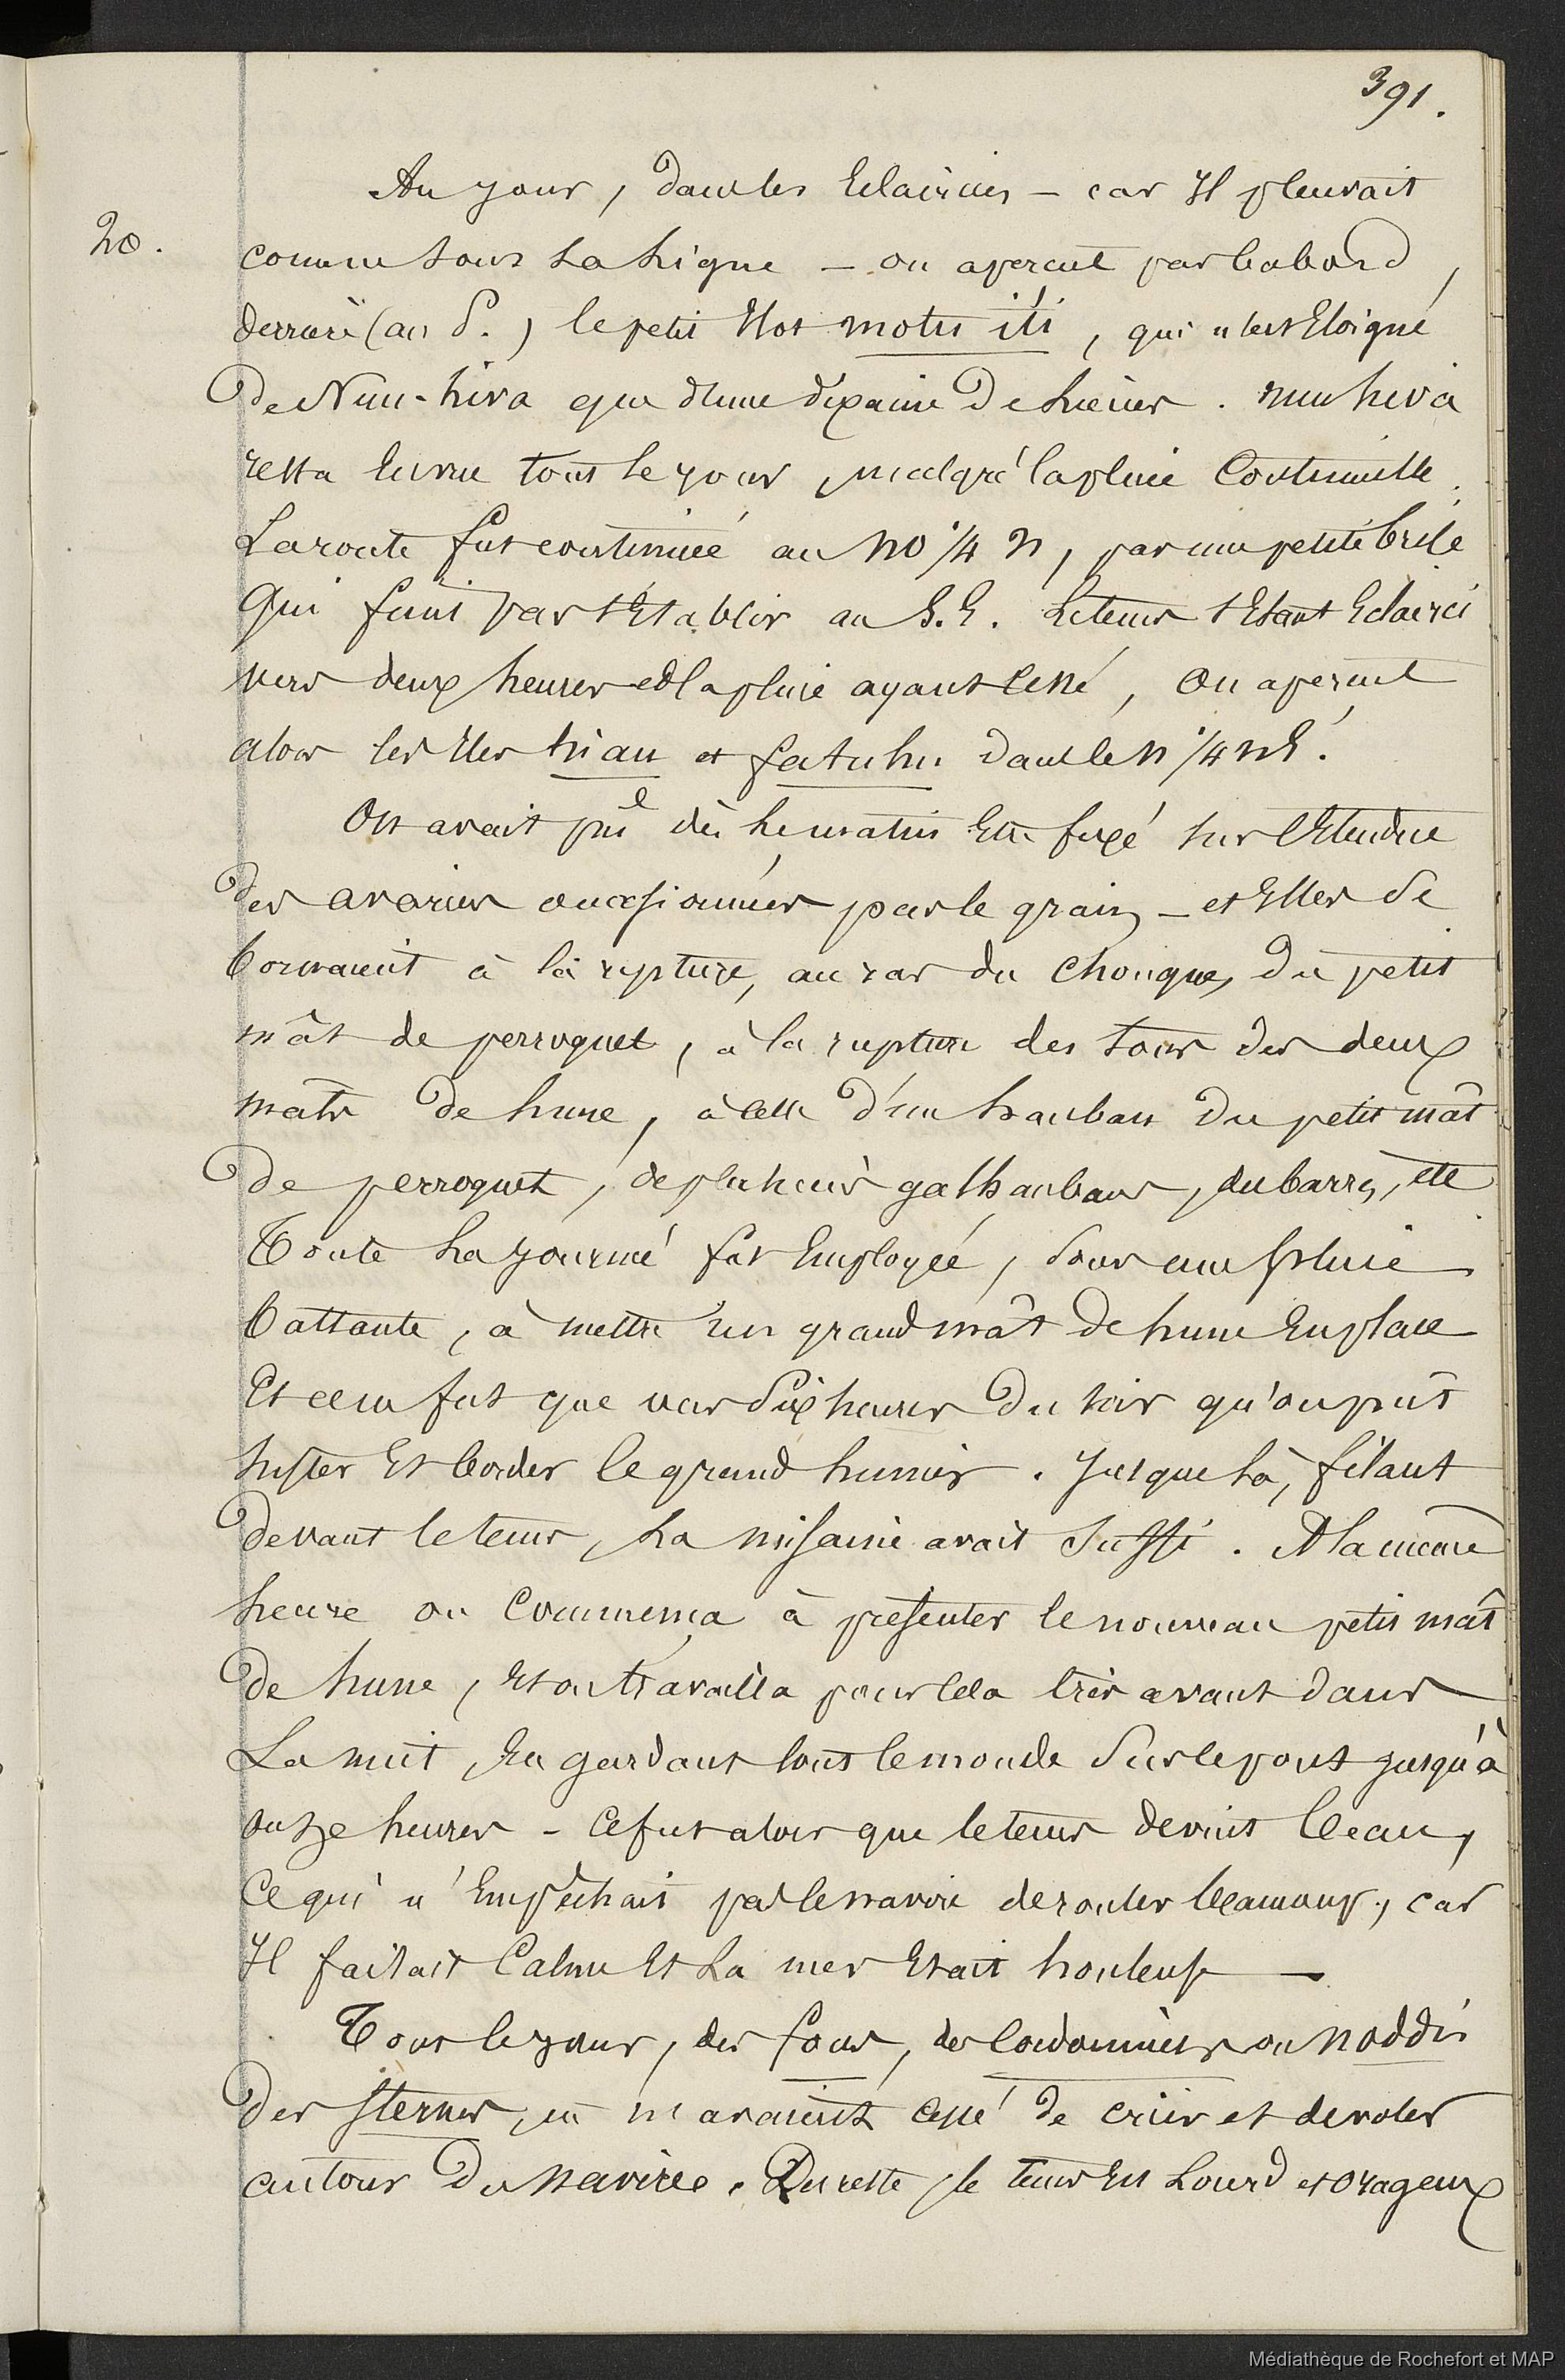 391.
Au jour, dans les Eclaircies – car Il pleuvait
20.
comme sous La Ligne – on aperçut par babord,
derrière (au S.) le petit Ilot motu iti, qui n'est Eloigné
De Nuu-hiva que d'une dixaine De Lieues. nuu hiva
resta En vue tout le jour, malgré la pluie Continuelle.
La route fut continuée au NO 1/4 N, par une petite brise
Qui finit par s'Etablir au S.E. Le tems s'Etant Eclairci
vers deux heures et la pluie ayant cessé, On aperçut
alors les Iles hiau et fatuhu dans le N 1/4 NE.
On avait pu dès le matin Etre fixé sur l'Etendue
Des avaries occasionnées par le grain – et Elles se
bornaient à la rupture, au ras du chouque, du petit
mât de perroquet, à la rupture des tons des deux
mâts de hune, à celle d'un hauban du petit mât
De perroquet, de plusieurs galhaubans, du barres, etc
Toute La journée fut Employée, sous une pluie
battante, à mettre un grand mât de hune En place
Et ce ne fut que vers Six heures Du soir qu'on put
hisser Et border le grand hunier. Jusque là, filant
Devant le tems, La misaine avait Suffi. A la même
heure on Commença à présenter le nouveau petit mât
De hune, Et on travailla pour Cela très avant dans
La nuit, En gardant tout le monde Sur le pont jusqu'à
onze heures – Ce fut alors que le tems devint beau,
Ce qui n'Empêchait pas le navire de rouler beaucoup, car
Il faisait Calme Et La mer Etait houleuse –
Tous le jour, des fous, des Cordonniers ou noddis
Des sternes, n'avaient cessé de crier et de voler
autour Du Navire. Du reste, le tems Est Lourd et Orageux
Médiathèque de Rochefort et MAP